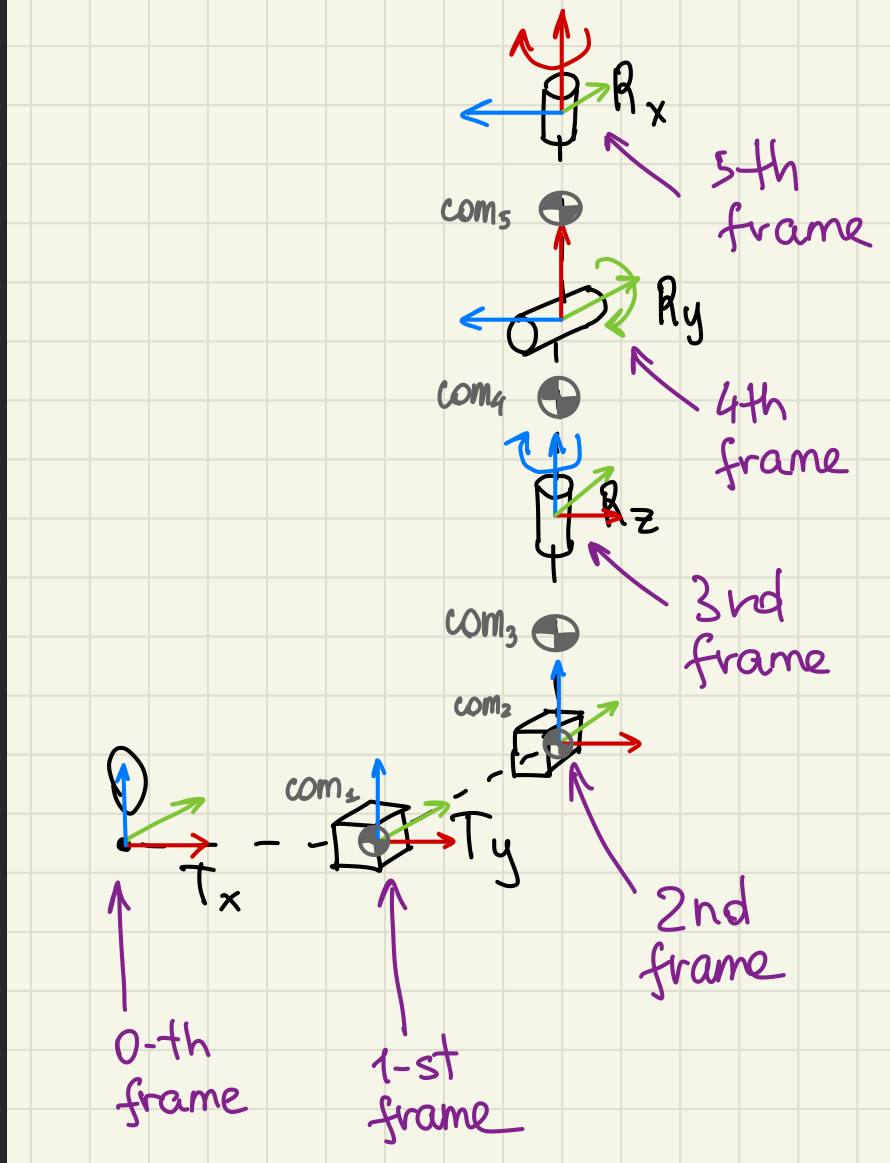 Rx
5-th
frame
com5
Ry
com4
4th
frame
Rz
3rd
frame
com3
com2
0
com1
Tx
Ty
2nd
frame
0-th
frame
1-st
frame